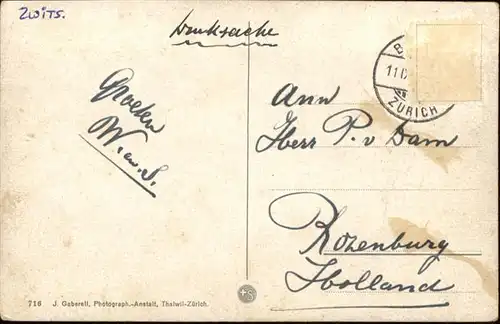 Zwits.
Drucksache
11.I
ZÜRICH
Groeten
W. v. S.
Ann
Herr P. v Dam
Rozenburg
Holland
716 J. Gaberell, Photograph.-Anstalt, Thalwil-Zürich.